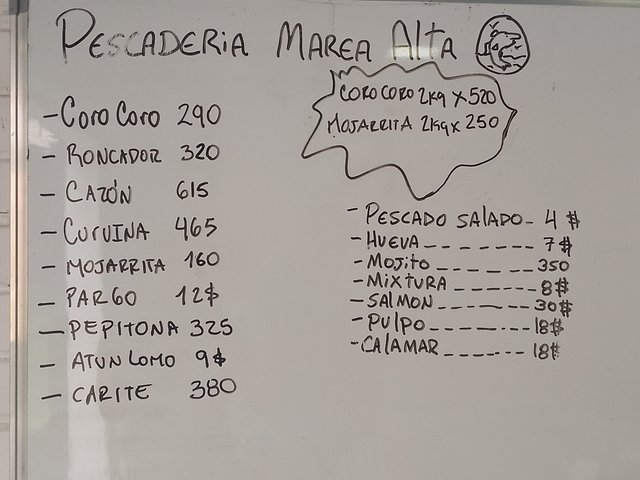 PESCADERIA MAREA Alta
- Coro Coro 290
- RONCADOR 320
- CAZÓN 615
- CURVINA 465
- MOJARRITA 160
- PARGO 12$
- PEPITONA 325
- ATUN LOMO 9$
- CARITE 380
COROCORO 2Kg X 520
MOJARRITA 2Kg x 250
- PESCADO SALADO - 4 $
- HUEVA _ _ _ _ _ _ _ 7 $
- MOJITO _ _ _ _ _ _ 350
- MIXTURA _ _ _ _ _ _ 8$
- SALMON _ _ _ _ _ _ 30$
- PULPO _ _ _ _ _ _ 18$
- CALAMAR _ _ _ _ _ _ 18$